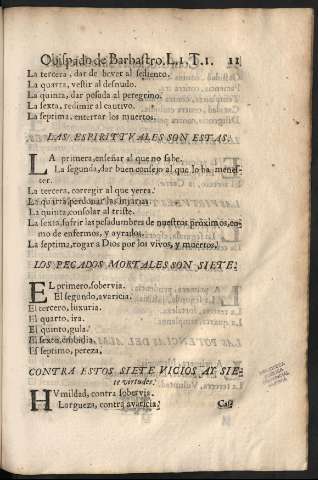 Obispado de Barbastro. L. 1. T. 1. 11
La tercera, dar de bever al sediento.
La quarta, vestir al desnudo.
La quinta, dar posada al peregrino.
La sexta, redimir al cautivo.
La septima, enterrar los muertos.
LAS ESPIRITVALES SON ESTAS.
LA primera, enseñar al que no sabe.
La segunda, dar buen consejo al que lo ha menes-
ter.
La tercera, corregir al que yerra.
La quarta, perdonar las injurias.
La quinta, consolar al triste.
La sexta, sufrir las pesadumbres de nuestros proximos, co-
mo de enfermos, y ayrados.
La septima, rogar a Dios por los vivos, y muertos.
LOS PECADOS MORTALES SON SIETE.
EL primero, sobervia.
El segundo, avaricia.
El tercero, luxuria.
El quarto, ira.
El quinto, gula.
El sexto, embidia.
El septimo, pereza,
CONTRA ESTOS SIETE VICIOS AY SIE-
te virtudes.
HVmildad, contra sobervia.
Largueza, contra avaricia.
Cas-